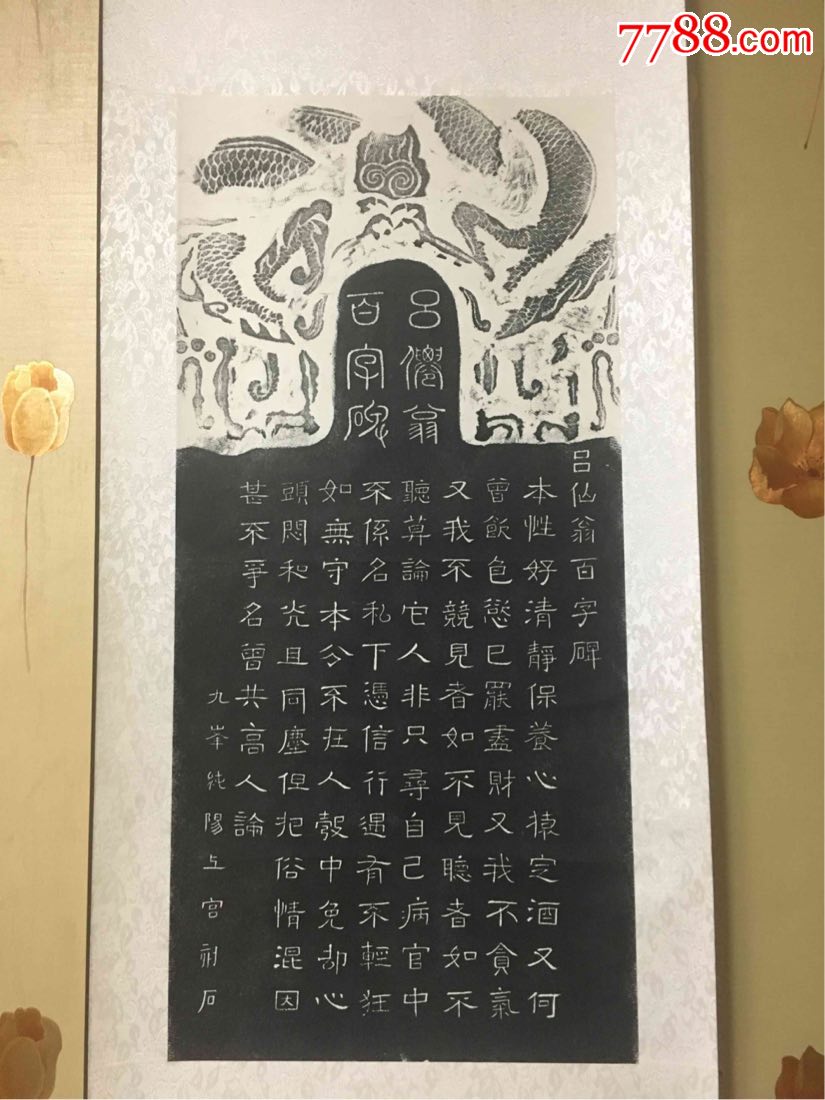 7788.com
呂僊翁
百字碑
呂仙翁百字碑
本性好清靜保養心猿定酒又何
曾飲色慾已罷盡財又我不貪氣
又我不競見者如不見聽者如不
聽莫論它人非只尋自己病官中
不係名私下憑信行遇有不輕狂
如無守本分不在人彀中免却心
頭悶和光且同塵但犯俗情混因
甚不爭名曾共高人論
九峯純陽上宮石